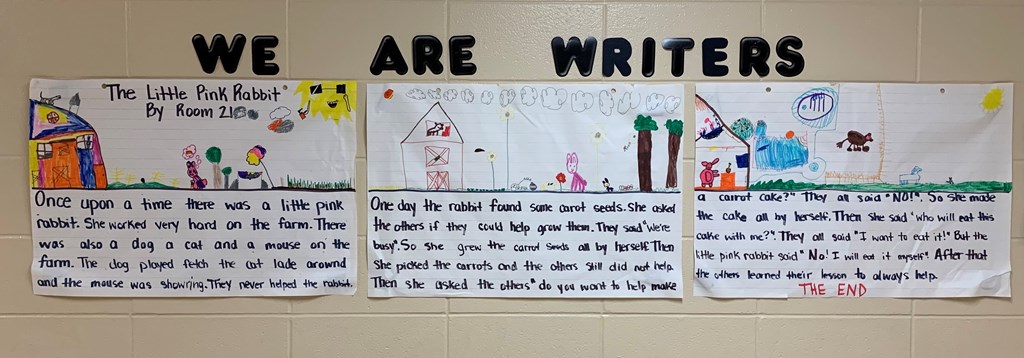 WE ARE WRITERS
The Little Pink Rabbit
By Room 210
Once upon a time there was a little pink
rabbit. She worked very hard on the farm. There
was also a dog a cat and a mouse on the
farm. The dog played fetch the cat lade around
and the mouse was showring. They never helped the rabbit.
One day the rabbit found some carot seeds. She asked
the others if they could help grow them. They said "We're
busy". So she grew the carrot seeds all by herself. Then
She picked the carrots and the others still did not help.
Then she asked the others" do you want to help make
a carrot cake?" They all said "NO!". So she made
the cake all by herself. Then she said "who will eat this
cake with me?". They all said "I want to eat it!" But the
little pink rabbit said "No! I will eat it myself". After that
the others learned their lesson to always help.
THE END